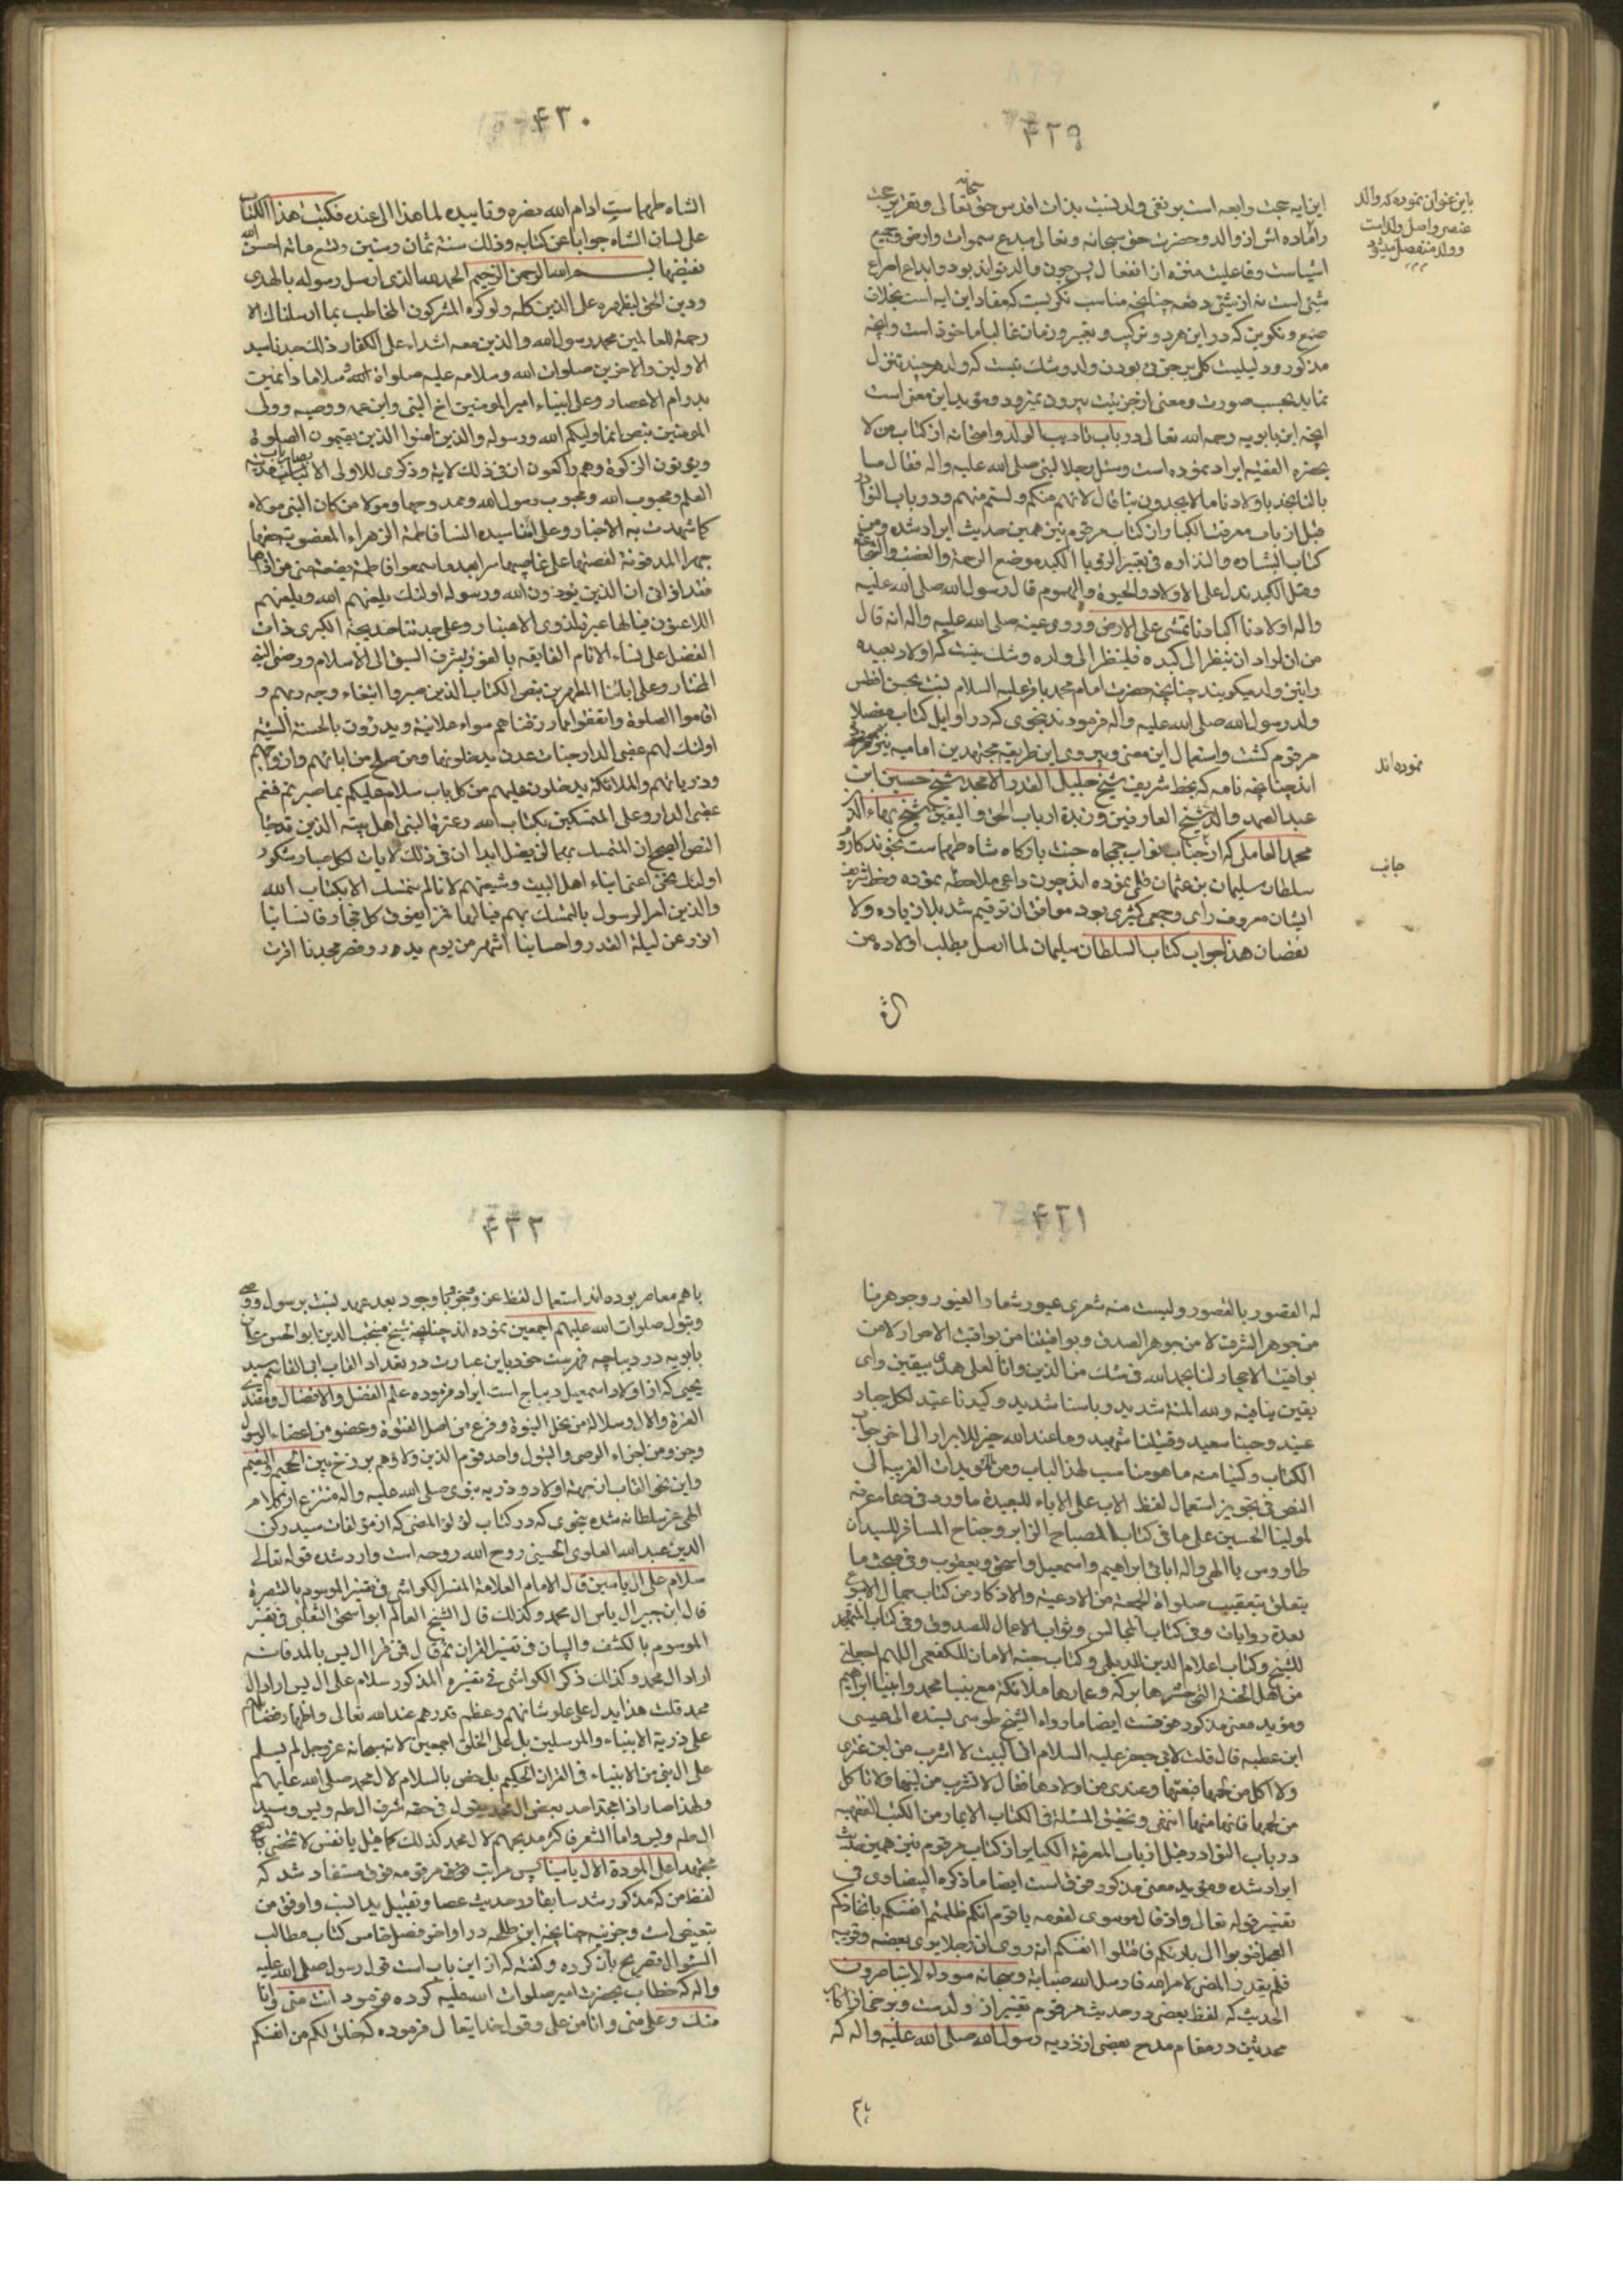 ۴۲۹
این ایه حجت رابعه است بر نفی ولد نسبت بذات اقدس حق سبحانه تعالی و تقریر حجت
باین عنوان نموده که والد
عنصر و اصل ولد است
و ولد منفصل میشود
از ماده اش از والد و حضرت حق سبحانه و تعالی مبدع سموات و ارض و جمیع
اشیاست و فاعلیت منزه از انفعال پس چون والد تواند بود و ابداع اختراع
شیء است نه از شیء دفعه چنانچه مناسب نکوست که مفاد این ایه است بخلاف
صنع و تکوین که در این هر دو ترکیب و تغییر و زمان غالبا ماخوذ است و انچه
مذکور شد دلیلیت کلی بر جزئی بودن ولد و شک نیست که ولد هر چند تنزل
نماید بحسب صورت و معنی از جزئیت بیرون نمیرود و موید این معنی است
انچه ابن بابویه رحمه الله تعالی در باب تادیب الولد و امتحانه از کتاب من لا
یحضره الفقیه ایراد نموده است و سئل رجل النبی صلی الله علیه و اله فقال ما
بالنا نجد باولادنا ما لا یجدون بنا قال لانهم منکم و لستم منهم و در باب النوادر
قبل از باب معرفت الکبایر از کتاب مرقوم نیز همین حدیث ایراد شده و من
کتاب البشاره و النذاره فی تعبیر الرؤیا الکبد موضع الرحمة و الغضب و الشجاعة
و قیل الکبد تدل علی الاولاد و الحیوة و الهموم قال رسول الله صلی الله علیه
و اله اولادنا اکبادنا تمشی علی الارض و روی عنه صلی الله علیه و اله انه قال
من اراد ان ینظر الی کبده فلینظر الی ولده و شک نیست که اولاد بعیده
را نیز ولد میکویند چنانچه حضرت امام محمد باقر علیه السلام نسبت بحسن افطس
ولد رسول الله صلی الله علیه و اله فرمودند بنحوی که در اوایل کتاب مفصلا
مرقوم کشت و استعمال این معنی و پیروی این طریقه مجتهدین امامیه نیز
نموده اند
اند چنانچه نامه که بخط شریف شیخ جلیل القدر الامجد شیخ حسین ابن
عبد الصمد والد شیخ العارفین و زبدة ارباب الحق و الیقین شیخ بهاء الدین
محمد العاملی که از جناب نواب جمجاه جنت بارکاه شاه طهماست بخوندکار روم
جانب
سلطان سلیمان بن عثمان قلمی نموده اند چون داعی ملاحظه نموده و خط شریف
ایشان معروف رای و جمعی کثیری بود موافق ان ترقیم شد بلا زیاده و لا
نقصان هذا جواب کتاب السلطان سلیمان لما ارسل یطلب اولاده من
۴۳۰
الشاه طهماست ادام الله نصره و تاییده لما هذا الی عنده فکتب هذا الکتاب
علی لسان الشاه جوابا عن کتابه و ذلک سنة ثمان و ستین و تسع مائه احسن الله
تقضیها بسم الله الرحمن الرحیم الحمد لله الذی ارسل رسوله بالهدی
و دین الحق لیظهره علی الدین کله و لو کره المشرکون المخاطب بما ارسلناک الا
رحمة للعالمین محمد رسول الله و الذین معه اشداء علی الکفار ذلک جدنا سید
الاولین و الاخرین صلوات الله و سلامه علیه صلواة و سلاما دائمین
بدوام الاعصار و علی ابیناء امیر المومنین اخ النبی و ابن عمه و وصیه و ولی
المومنین بنص انما ولیکم الله و رسوله و الذین امنوا الذین یقیمون الصلوة
و یوتون الزکوة و هم راکعون ان فی ذلک لایة و ذکری للاولی الالباب
العلم و محبوب الله و محبوب رسول الله و ممدوحهما و مولا من کان النبی مولاه
کما شهدت به الاخبار و علی امنا سیده النسا فاطمة الزهراء المغضوبة حقها
جهرا المدفونة لغصتها علی غاصبیها سرا بعد ما سمعوا فاطمة بضعة منی من اذاها
فقد اذانی ان الذین یؤذون الله و رسوله اولئک یلعنهم الله و یلعنهم
اللاعنون فیالها عبرة لذوی الاعتبار و علی جدتنا خدیجة الکبری ذات
الفضل علی نساء الانام الفایقه بالفوز بشرف السبق الی الاسلام و رضی النبی
المختار و علی ابائنا المطهرین بنص الکتاب الذین صبروا ابتغاء وجه ربهم و
اقاموا الصلوة و انفقوا مما رزقناهم سرا و علانیة و یدرؤن بالحسنة السیئة
اولئک لهم عقبی الدار جنات عدن یدخلونها و من صلح من ابائهم و ازواجهم
و ذریاتهم و الملائکة یدخلون علیهم من کل باب سلام علیکم بما صبرتم فنعم
عقبی الدار و علی المتمسکین بکتاب الله و عترة النبی اهل بیته الذین
النص الصحیح ان المتمسک بهما لن یضل ابدا ان فی ذلک لایات لکل صبار شکور
اولئک نحن اعنی ابناء اهل البیت و شیعتهم لانا لم نتمسک الا بکتاب الله
و الذین امر الرسول بالتمسک بهم فیالها فخرا یفوق کل فخار فانسابنا
انور من لیلة القدر و احسابنا اشهر من یوم بدر و قصر مجدنا اقرت
۴۳۱
له القصور بالقصور و لیست منه شعری عبور شعار الغیور و جوهرنا
من جوهر الشرف لا من جوهر الصدف و یواقیتنا من یواقیت الاحرار لا من
یواقیت الاحجار لسنا بحمد الله فی شک من الدین و انا لعلی هدی بیقین و ای
یقین ینافه و لله المنة شدید و باسنا شدید و کیدنا عتید لکل جبار
عنید و حینا سعید و قتیلنا شهید و ما عند الله خیر للابرار الی اخر جواب
الکتاب و کتبنا منه ما هو مناسب لهذا الباب و من المؤیدات القریبة الی
النص فی تجویز استعمال لفظ الاب علی الاباء البعیدة ما ورد فی دعاء عرفه
لمولینا الحسین علی ما فی کتاب المصباح الزایر و جناح المسافر للسید ابن
طاووس یا الهی و اله ابائی ابراهیم و اسمعیل و اسحق و یعقوب و فی مبحث ما
یتعلق بتعقیب صلواة الجمعة من الادعیة و الاذکار من کتاب جمال الاسبوع
بعدة روایات و فی کتاب المجالس و ثواب الاعمال للصدوق و فی کتاب المتهجد
للشیخ و کتاب اعلام الدین للدیلمی و کتاب جنة الامان للکفعمی اللهم اجعلنی
من اهل الجنة التی حشوها برکه و عمارها ملائکة مع نبینا محمد و ابینا ابراهیم
و موید معنی مذکور هو مستند ایضا ما رواه الشیخ طوسی بسنده الی عیسی
ابن عطیه قال قلت لابی جعفر علیه السلام انی الیت لا اشرب من لبن عنزی
و لا اکل من لحمها فبعتها و عندی من اولادها فقال لا تشرب من لبنها و لا تاکل
من لحمها فانها منها انتهی و تحقیق المسئلة فی الکتاب الایمان من الکتب الفقهیه
در باب النوادر قبل از باب المعرفة الکبایر از کتاب مرقوم نیز همین حدیث
ایراد شده و موید معنی مذکور فوق است ایضا ما ذکره البیضاوی فی
تفسیر قوله تعالی و اذ قال موسی لقومه یا قوم انکم ظلمتم انفسکم باتخاذکم
العجل فتوبوا الی بارئکم فاقتلوا انفسکم انه روی ان الرجل یری بعضه و قریبه
فلم یقدر المضی لامر الله فارسل الله ضبابة و سحابة سوداء لا یتباصرون
الحدیث که لفظ بعضی در حدیث مرقوم تفسیر از ولدست و برخی از اکابر
محدثین در مقام مدح بعضی از ذریه رسول الله صلی الله علیه و اله که
۴۳۲
باهم معاصر بوده اند استعمال لفظ عن و نحو با وجود بعد عهد نسبت برسول و وصی
و بتول صلوات الله علیهم اجمعین نموده اند چنانچه شیخ منتجب الدین ابو الحسن علی بن
بابویه در دیباچه فهرست خود باین عبارت در تعداد القاب ابی القاسم سید
یحیی که از اولاد اسمعیل دیباج است ایراد فرموده علم الفضل و الافضال و مقتدی
العترة و الال و سلالة من نخل النبوة و فرع من اصل الفتوة و عضو من اعضاء الرسول
و جزو من اجزاء الوصی و البتول و احد قوم الذین ولاؤهم برزخ بین الجحیم و النعیم
و این نحو القاب از جهة اولاد و ذریه نبوی صلی الله علیه و اله منتزع از کلام
الهی عز سلطانه شده بنحوی که در کتاب لؤلؤ المضی که از مؤلفات سید رکن
الدین عبد الله العلوی الحسینی روح الله روحه است وارد شده قوله تعالی
سلام علی ال یاسین قال الامام العلامة المفسر الکواشی فی تفسیر الموسوم بالتبصرة
قال ابن جبیر ال یاس ال محمد و کذلک قال الشیخ العالم ابو اسحق الثعلبی فی تفسیر
الموسوم بالکشف و البیان فی تفسیر القران ثم قال فمن قرا ال یس بالمد فانه
اراد ال محمد و کذلک ذکر الکواشی فی تفسیره المذکور سلام علی ال یس اراد ال
محمد قلت هذا یدل علی علو شانهم و عظم قدرهم عند الله تعالی و اظهار فضلهم
علی ذریة الانبیاء و المرسلین بل علی الخلق اجمعین لانه سبحانه عز و جل لم یسلم
علی ال نبی من الانبیاء فی القران الحکیم بل خص بالسلام لال محمد صلی الله علیهم
و لهذا صار اذا مجد احد بعض ال محمد یقول فی حقه شرف ال طه و یس و سید
ال طه و یس و اما الشعر فاکثر مدیحهم لال محمد کذلک کما قیل یا نفس لا تمحضی بالنصح
مجتهدا علی المودة الا ال یاسینا پس مراتب فوق مرقومه فوق مستفاد شد که
لفظ من که مذکور شد سابقا در حدیث عصا و تقبیل ید انسب و اوفق من
تبعیض است و جزئیه چنانچه ابن طلحه در اواخر فصل خامس کتاب مطالب
السئول تصریح بان کرده و کفته که از این باب است قول رسول صلی الله علیه
و اله که خطاب بحضرت امیر صلوات الله علیه کرده فرمود انت منی و انا
منک و علی منی و انا من علی و قول خدایتعال فرموده که خلق لکم من انفسکم